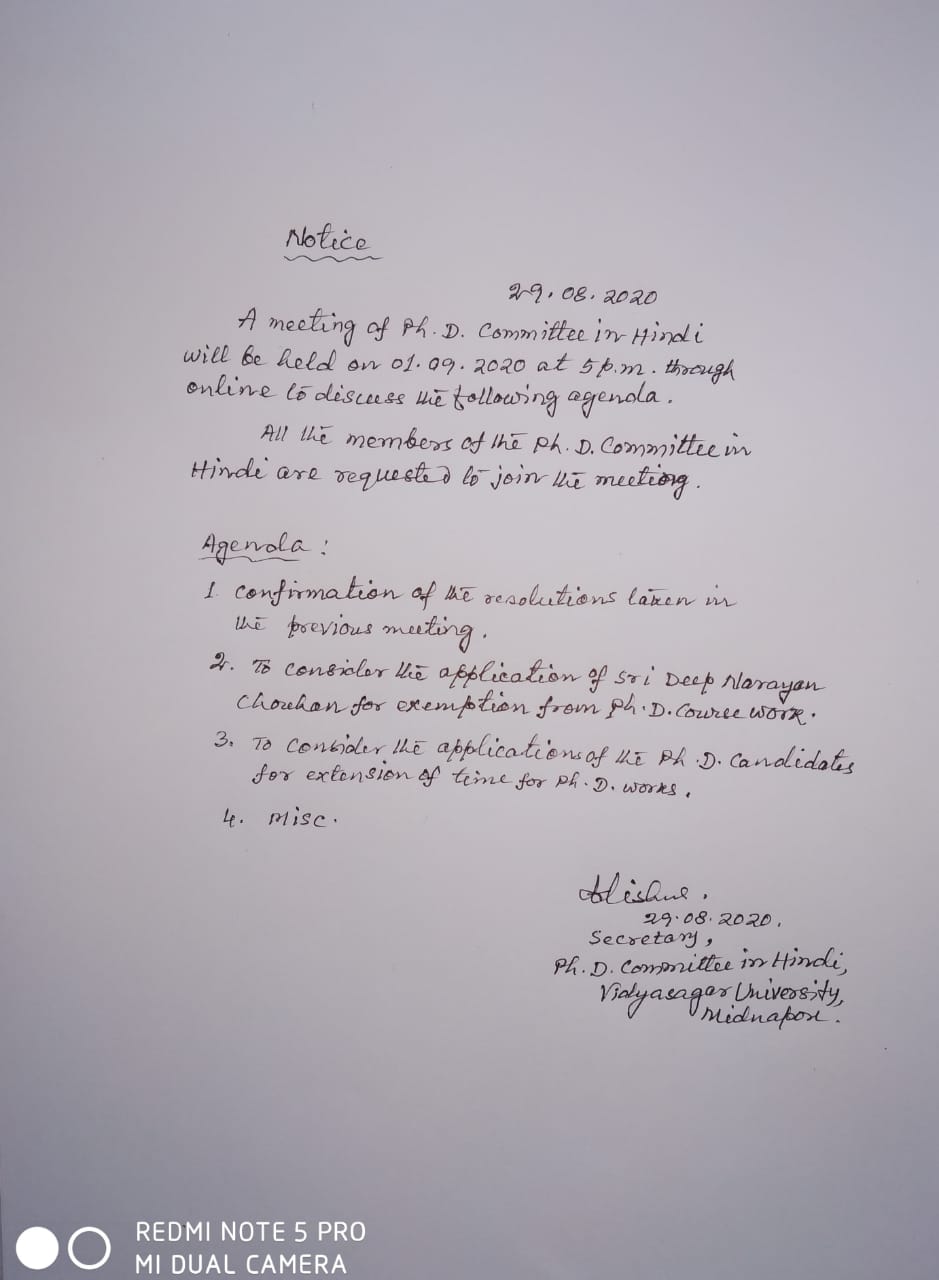 Notice
29.08.2020
A meeting of Ph.D. Committee in Hindi
will be held on 01.09.2020 at 5 p.m. through
online to discuss the following agenda.
All the members of the Ph.D. Committee in
Hindi are requested to join the meeting.
Agenda:
1. Confirmation of the resolutions taken in
the previous meeting.
2. To consider the application of Sri Deep Narayan
Chouhan for exemption from Ph.D. Course work.
3. To consider the applications of the Ph.D. Candidates
for extension of time for Ph.D. works.
4. Misc.
29.08.2020.
Secretary,
Ph.D. Committee in Hindi,
Vidyasagar University,
Midnapore.
REDMI NOTE 5 PRO
MI DUAL CAMERA